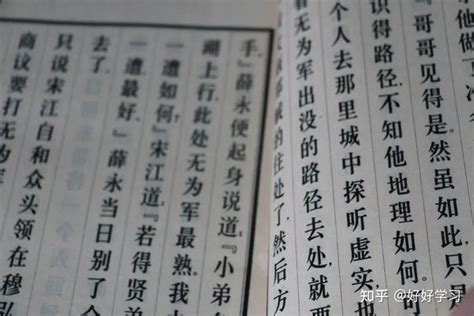 『哥哥见得是。然虽如此,只是
识得路径,不知他地理如何。
个人去那里城中探听虚实,也
看无为军出没的路径去处,就要
的住处了,然后方
手。』薛永便起身说道:『小弟
湖上行,此处无为军最熟。我
一遭如何?』宋江道:『若得贤
一遭最好。』薛永当日别了
去了。
只说宋江自和众头领在穆弘
商议要打无为
知乎 @好好学习